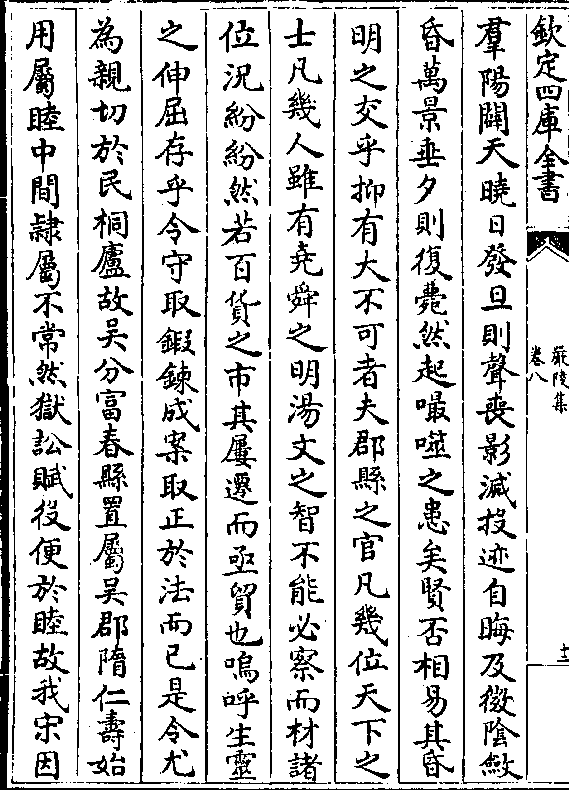 欽定四庫全書
嚴陵集
卷八
十二
羣陽闢天曉日發旦則聲喪影滅投迹自晦及微陰斂
昏萬景垂夕則復薨然起嘬噬之患矣賢否相易其昏
明之交乎抑有大不可者夫郡縣之官凡幾位天下之
士凡幾人雖有堯舜之明湯文之智不能必察而材諸
位況紛紛然若百貨之市其屢遷而亟貿也嗚呼生靈
之伸屈存乎令守取鍜鍊成案取正於法而已是令尤
為親切於民桐廬故吳分富春縣置屬吳郡隋仁壽始
用屬睦中間隷屬不常然獄訟賦役便於睦故我宋因